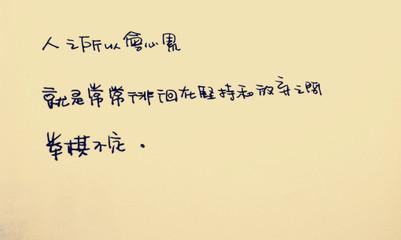 人之所以會心累
就是常常徘徊在堅持和放棄之間
舉棋不定.